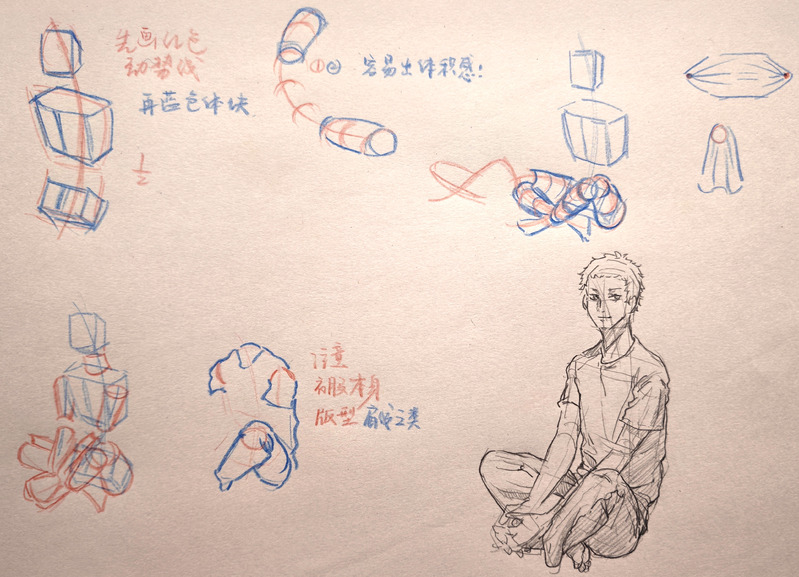 先画红色
动势线
再蓝色体块
①② 容易出体积感!
1/2
注意
衣服本身
版型 肩线之类